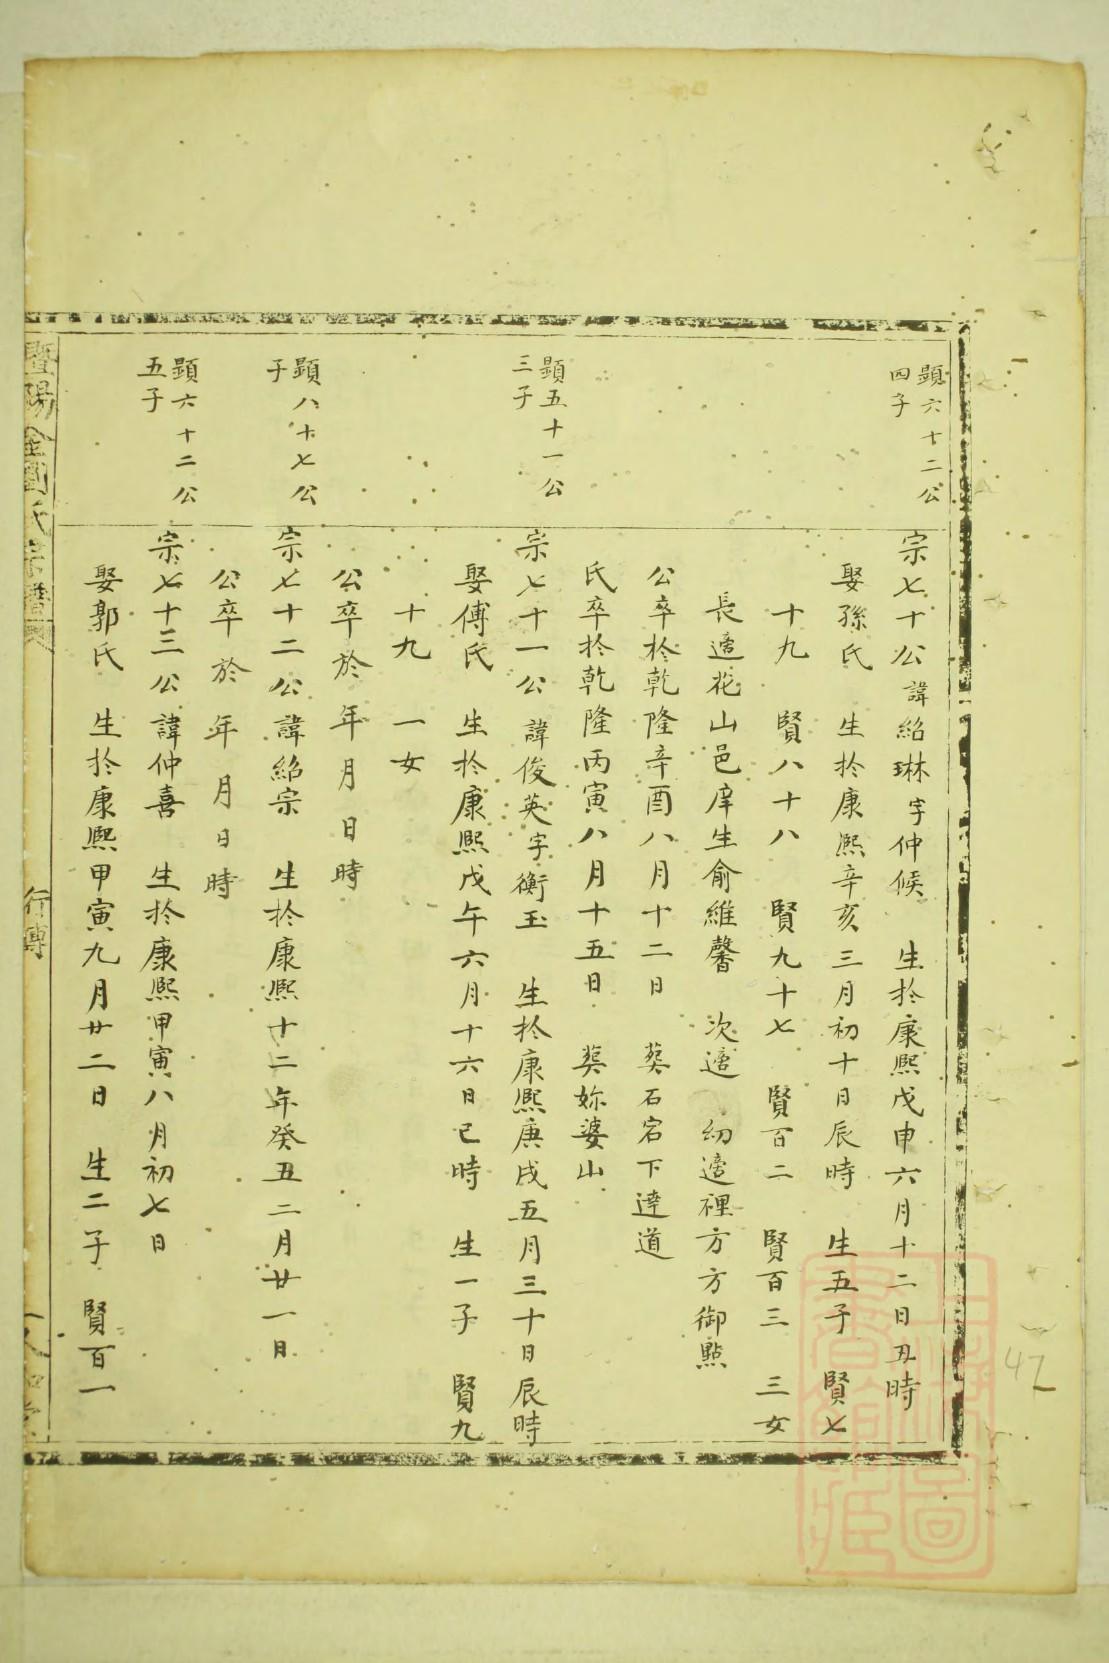 顕六十二公
四子
宗七十公諱紹琳字仲候 生於康熙戊申六月十二日丑時
娶孫氏 生於康熙辛亥三月初十日辰時 生五子 賢七
十九 賢八十八 賢九十七 賢百二 賢百三 三女
長適花山邑庠生俞維馨 次適 幼適裡方方御點
公卒於乾隆辛酉八月十二日 葬石宕下達道
氏卒於乾隆丙寅八月十五日 葬妳婆山
顕五十一公
三子
宗七十一公諱俊英字衡玉 生於康熙庚戌五月三十日辰時
娶傅氏 生於康熙戊午六月十六日巳時 生一子 賢九
十九 一女
公卒於年月日時
顕八十七公
子
宗七十二公諱紹宗 生於康熙十二年癸丑二月廿一日
公卒於年月日時
顕六十二公
五子
宗七十三公諱仲喜 生於康熙甲寅八月初七日
娶郭氏 生於康熙甲寅九月廿二日 生二子 賢百一
暨陽金劉氏宗譜
行傳
47